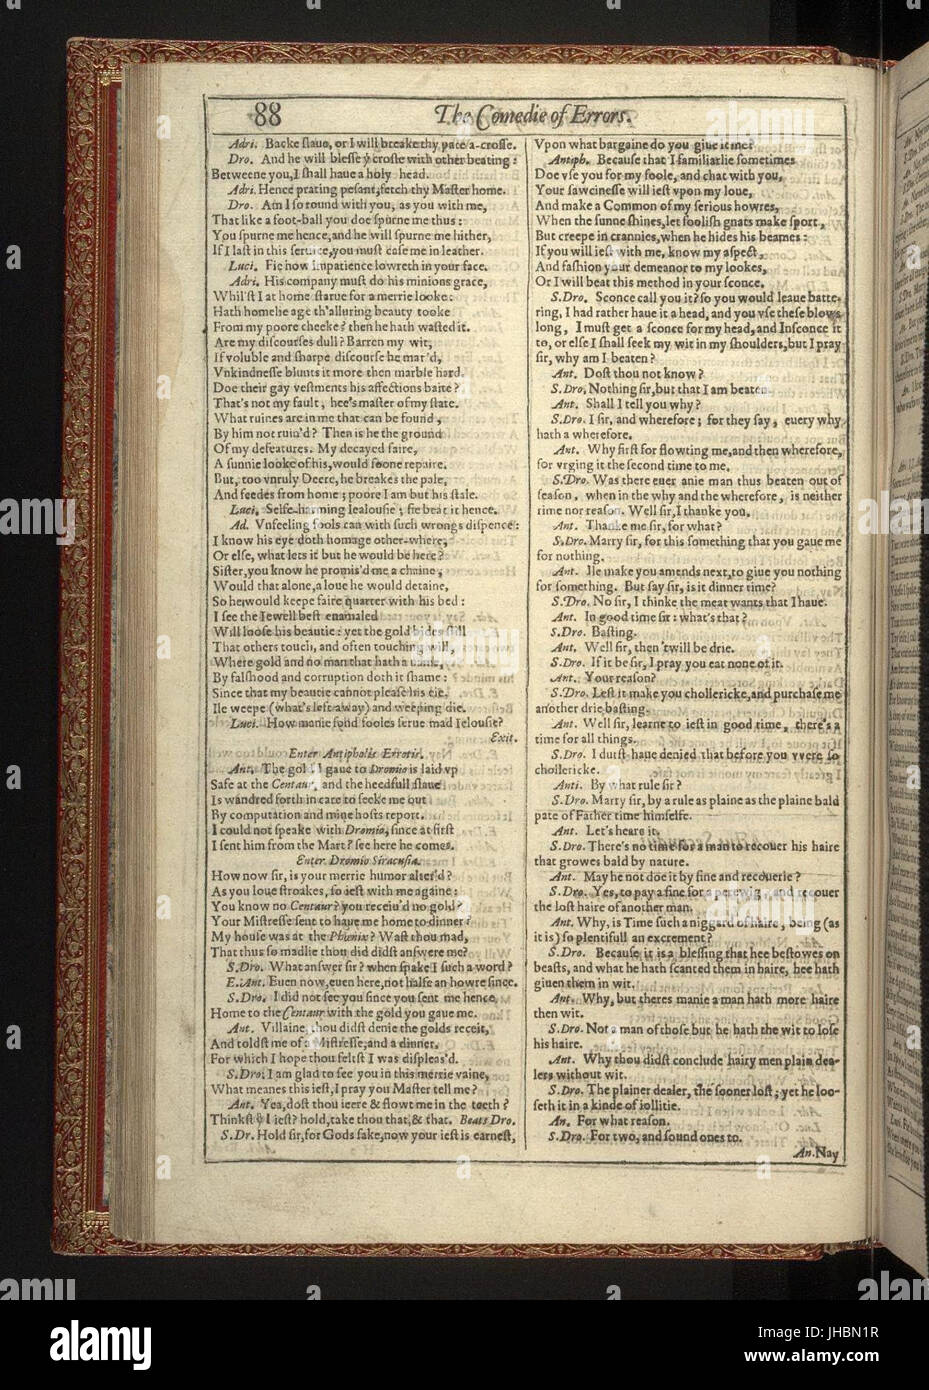 88
The Comedie of Errors.
Adri. Backe slaue, or I will breake thy pate a-crosse.
Dro. And he will blesse yͤ crosse with other beating:
Betweene you, I shall haue a holy head.
Adri. Hence prating pesant, fetch thy Master home.
Dro. Am I so round with you, as you with me,
That like a foot-ball you doe spurne me thus:
You spurne me hence, and he will spurne me hither,
If I last in this seruice, you must case me in leather.
Luci. Fie how impatience lowreth in your face.
Adri. His company must do his minions grace,
Whil'st I at home starue for a merrie looke:
Hath homelie age th'alluring beauty tooke
From my poore cheeke? then he hath wasted it.
Are my discourses dull? Barren my wit,
If voluble and sharpe discourse be mar'd,
Vnkindnesse blunts it more then marble hard.
Doe their gay vestments his affections baite?
That's not my fault, hee's master of my state.
What ruines are in me that can be found,
By him not ruin'd? Then is he the ground
Of my defeatures. My decayed faire,
A sunnie looke of his, would soone repaire.
But, too vnruly Deere, he breakes the pale,
And feedes from home; poore I am but his stale.
Luci. Selfe-harming Iealousie; fie beat it hence.
Ad. Vnfeeling fools can with such wrongs dispence:
I know his eye doth homage other-where,
Or else, what lets it but he would be here?
Sister, you know he promis'd me a chaine,
Would that alone, a loue he would detaine,
So he would keepe faire quarter with his bed:
I see the Iewell best enamaled
Will loose his beautie: yet the gold bides still
That others touch, and often touching will,
Where gold and no man that hath a name,
By falshood and corruption doth it shame:
Since that my beautie cannot please his eie,
Ile weepe (what's left away) and weeping die.
Luci. How manie fond fooles serue mad Ielousie?
Exit.
Enter Antipholis Errotis.
Ant. The gold I gaue to Dromio is laid vp
Safe at the Centaur, and the heedfull slaue
Is wandred forth in care to seeke me out
By computation and mine hosts report.
I could not speake with Dromio, since at first
I sent him from the Mart? see here he comes.
Enter Dromio Siracusia.
How now sir, is your merrie humor alter'd?
As you loue stroakes, so iest with me againe:
You know no Centaur? you receiu'd no gold?
Your Mistresse sent to haue me home to dinner?
My house was at the Phœnix? Wast thou mad,
That thus so madlie thou did didst answere me?
S. Dro. What answer sir? when spake I such a word?
E. Ant. Euen now, euen here, not halfe an howre since.
S. Dro. I did not see you since you sent me hence
Home to the Centaur with the gold you gaue me.
Ant. Villaine, thou didst denie the golds receit,
And toldst me of a Mistresse, and a dinner,
For which I hope thou feltst I was displeas'd.
S. Dro. I am glad to see you in this merrie vaine,
What meanes this iest, I pray you Master tell me?
Ant. Yea, dost thou ieere & flowt me in the teeth?
Thinkst yͧ I iest? hold, take thou that, & that. Beats Dro.
S. Dr. Hold sir, for Gods sake, now your iest is earnest,
Vpon what bargaine do you giue it me?
Antiph. Because that I familiarlie sometimes
Doe vse you for my foole, and chat with you,
Your sawcinesse will iest vpon my loue,
And make a Common of my serious howres,
When the sunne shines, let foolish gnats make sport,
But creepe in crannies, when he hides his beames:
If you will iest with me, know my aspect,
And fashion your demeanor to my lookes,
Or I will beat this method in your sconce.
S. Dro. Sconce call you it? so you would leaue batte-
ring, I had rather haue it a head, and you vse these blows
long, I must get a sconce for my head, and Insconce it
to, or else I shall seek my wit in my shoulders, but I pray
sir, why am I beaten?
Ant. Dost thou not know?
S. Dro. Nothing sir, but that I am beaten.
Ant. Shall I tell you why?
S. Dro. I sir, and wherefore; for they say, euery why
hath a wherefore.
Ant. Why first for flowting me, and then wherefore,
for vrging it the second time to me.
S. Dro. Was there euer anie man thus beaten out of
season, when in the why and the wherefore, is neither
rime nor reason. Well sir, I thanke you.
Ant. Thanke me sir, for what?
S. Dro. Marry sir, for this something that you gaue me
for nothing.
Ant. Ile make you amends next, to giue you nothing
for something. But say sir, is it dinner time?
S. Dro. No sir, I thinke the meat wants that I haue.
Ant. In good time sir: what's that?
S. Dro. Basting.
Ant. Well sir, then 'twill be drie.
S. Dro. If it be sir, I pray you eat none of it.
Ant. Your reason?
S. Dro. Lest it make you chollericke, and purchase me
another drie basting.
Ant. Well sir, learne to iest in good time, there's a
time for all things.
S. Dro. I durst haue denied that before you vvere so
chollericke.
Anti. By what rule sir?
S. Dro. Marry sir, by a rule as plaine as the plaine bald
pate of Father time himselfe.
Ant. Let's heare it.
S. Dro. There's no time for a man to recouer his haire
that growes bald by nature.
Ant. May he not doe it by fine and recouerie?
S. Dro. Yes, to pay a fine for a perewig, and recouer
the lost haire of another man.
Ant. Why, is Time such a niggard of haire, being (as
it is) so plentifull an excrement?
S. Dro. Because it is a blessing that hee bestowes on
beasts, and what he hath scanted them in haire, hee hath
giuen them in wit.
Ant. Why, but theres manie a man hath more haire
then wit.
S. Dro. Not a man of those but he hath the wit to lose
his haire.
Ant. Why thou didst conclude hairy men plain dea-
lers without wit.
S. Dro. The plainer dealer, the sooner lost; yet he loo-
seth it in a kinde of iollitie.
An. For what reason.
S. Dro. For two, and sound ones to.
An. Nay
alamy
Image ID: JHBN1R
www.alamy.com